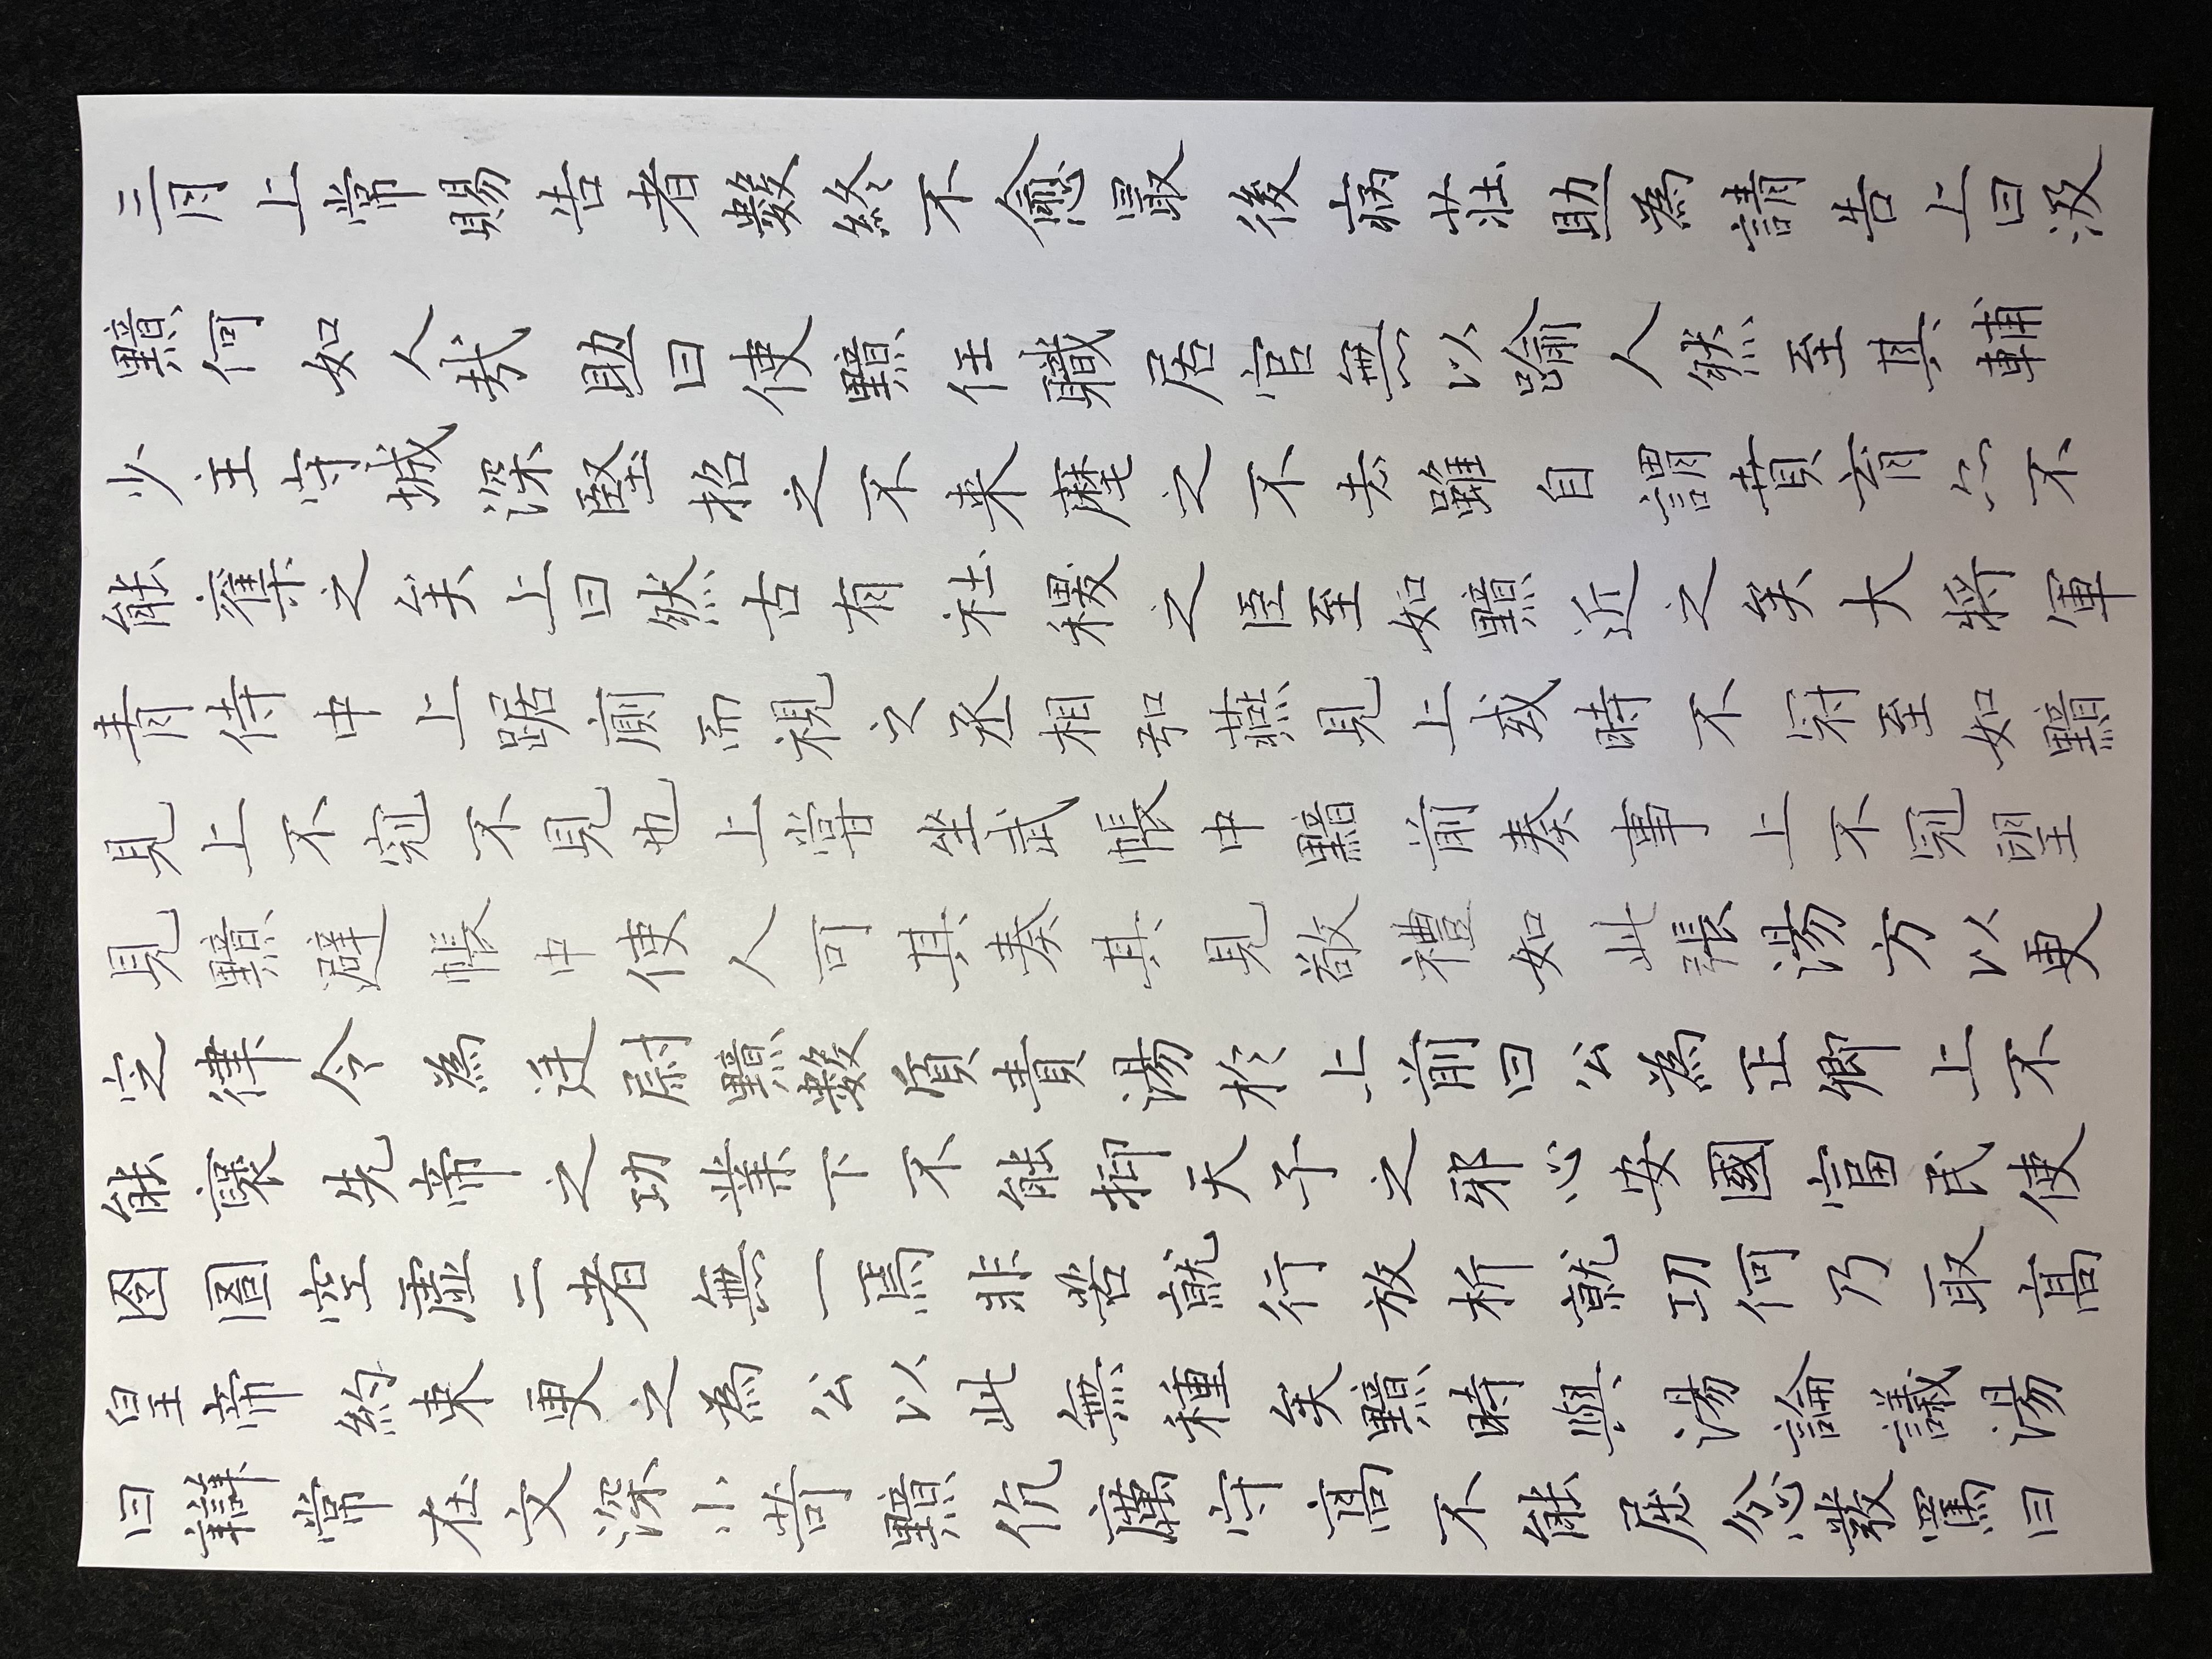 三月上常賜告者數終不愈最後病莊助為請告上曰汲
黯何如人哉助曰使黯任職居官無以踰人然至其輔
少主守城深堅招之不来麾之不去雖自謂賁育亦不
能奪之矣上曰然古有社稷之臣至如黯近之矣大將軍
青侍中上踞廁而視之丞相弘燕見上或時不冠至如黯
見上不冠不見也上嘗坐武帳中黯前奏事上不冠望
見黯避帳中使人可其奏其見敬禮如此張湯方以更
定律令為廷尉黯數質責湯於上前曰公為正卿上不
能襃先帝之功業下不能抑天子之邪心安國富民使
囹圄空虛二者無一焉非苦就行放析就功何乃取髙
皇帝約束更之為公以此無種矣黯時與湯論議湯
曰辯常在文深小苛黯伉厲守髙不能屈忿發罵曰